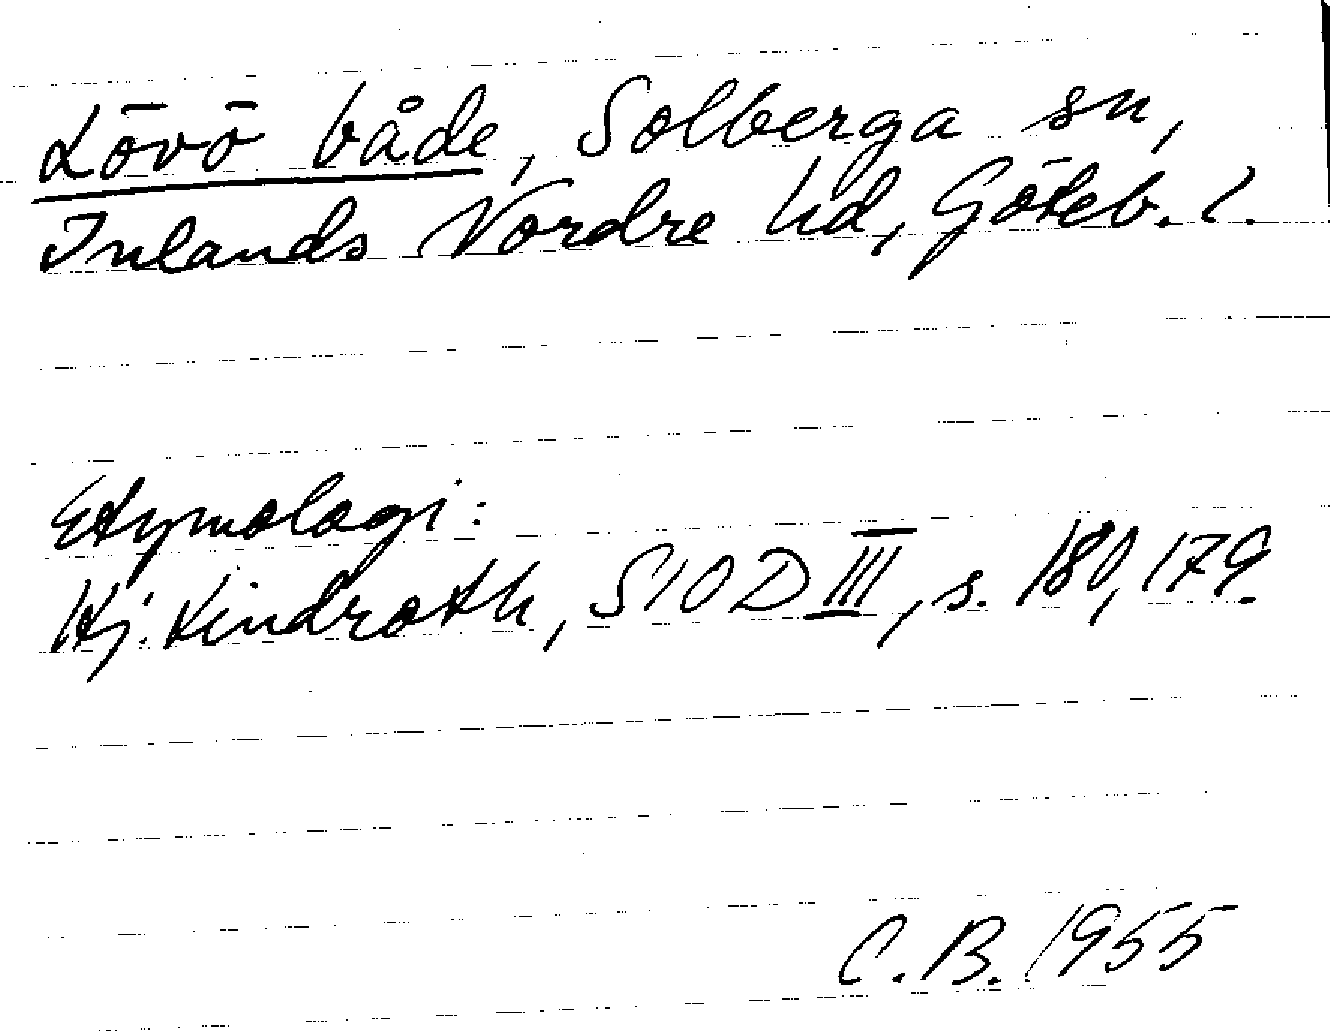 Lövö både, Solberga sn,
Inlands Nordre hd, Göteb. l.
Etymologi:
Hj. Lindroth, SIOD III, s. 180, 179.
C.B. 1955